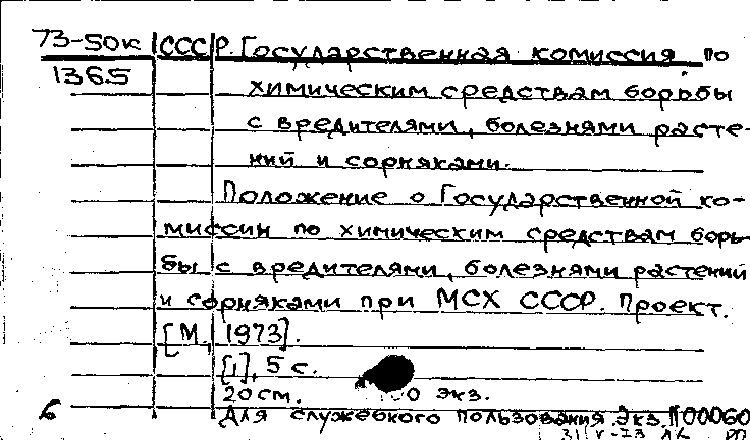 73-50к СССР. Государственная комиссия по
1365 химическим средствам борьбы
с вредителями, болезнями расте-
ний и сорняками.
Положение о Государственной ко-
миссии по химическим средствам борь-
бы с вредителями, болезнями растений
и сорняками при МСХ СССР. Проект.
[М., 1973].
[1], 5 с.
20 см. экз.
Для служебного пользования. Экз. №00060
б